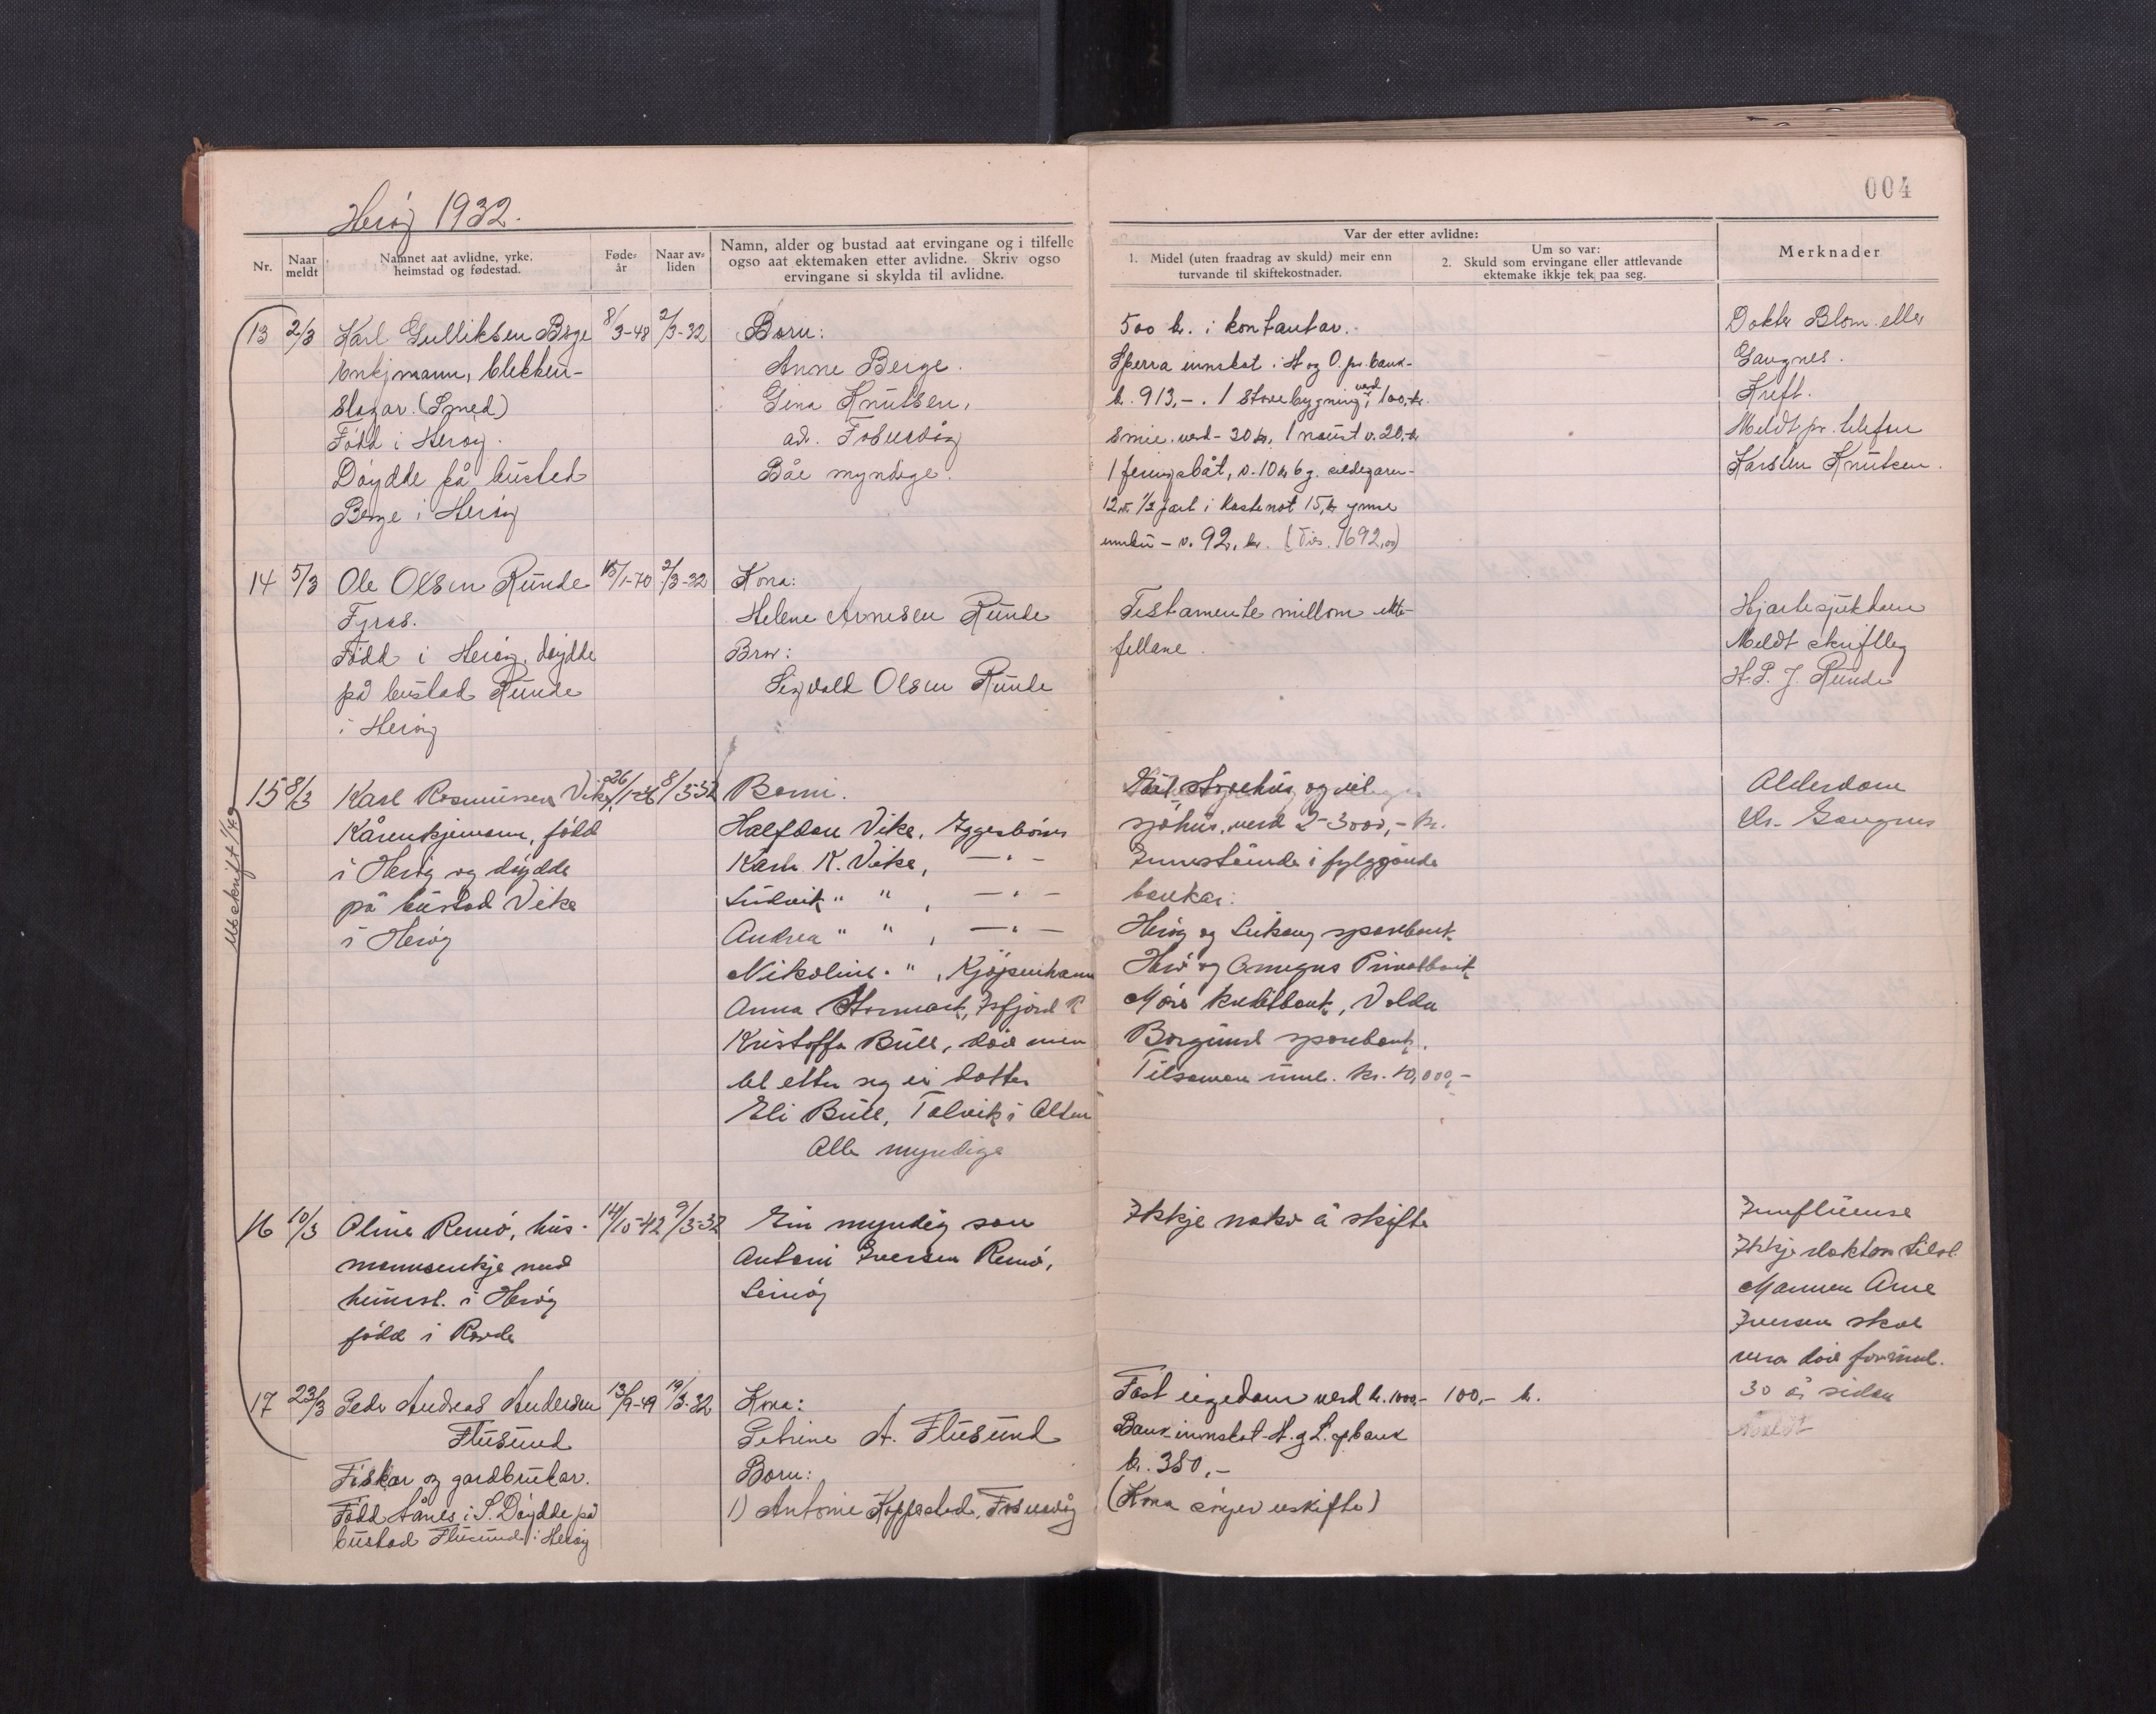 004
Herøy 1932.
Nr.
Naar meldt
Namnet aat avlidne, yrke.
heimstad og fødestad.
Føde-
år
Naar av-
liden
Namn, alder og bustad aat ervingane og i tilfelle
ogso aat ektemaken etter avlidne. Skriv ogso
ervingane si skylda til avlidne.
Var der etter avlidne:
1. Midel (uten fraadrag av skuld) meir enn
turvande til skiftekostnader.
Um so var:
2. Skuld som ervingane eller attlevande
ektemake ikkje tek paa seg.
Merknader
13 2/3 Karl Gulliksen Berge 8/3-48 2/3-32
enkjmann, blekken-
slagar. (Smed)
Född i Heröy.
Döydde på bustad
Berge i Heröy
Born:
Anne Berge.
Gina Knutsen,
ad. Fosnavåg
Båe myndige.
500 kr. i kontantar.
Sperra innskot i H og O. pr. bank-
kr. 913,-. 1 Stovebygning, verd 100,-kr.
Smie. verd - 30 kr, 1 naust v. 20,-kr
1 feringsbåt, v. 10 kr 6 g. sildegarn-
12,- 1/2 part i kastenot 15, kr ymse
innbu - v. 92, kr. (Tils. 1692,00)
Dokter Blom eller
Gangnes.
Kreft.
Meldt pr. telefon
Karsten Knutsen.
14 5/3 Ole Olsen Runde 15/1-70 2/3-32
Fyras.
Född i Heröy. döydde
på bustad Runde
i Heröy
Kona:
Helene Arnesen Runde
Bror:
Sigvald Olsen Runde
Testamente millom ekte-
fellane.
Hjartesjukdom
Meldt skriftleg
H. P. J. Runde
15 8/3 Karl Rasmussen Vike, 26/1-46 8/3-32
Kårenkjemann, född
i Herøy og døydde
på bustad Vike
i Herøy
Born.
Halfdan Vike, Eggesbönes
Karl K. Vike, — " —
Ludvik " " , — " —
Andrea " " , — " —
Nikoline " , Kjöpenhamn
Anna Stormark, Isfjord R
Kristoffa Bull, död men
let etter seg ei dotter
Eli Bull, Talvik i Alten
Alle myndige
sjøhus, verd 2-3000,- kr.
Innestånde i fylgjande
bankar:
Herøy og Leikong sparebank
Herø og Omegns Privatbank
Møre kreditbank, Volda
Borgund sparebank.
Tilsaman uml. kr. 40,000,-
Alderdom
Dr. Gangnes
16 10/3 Oline Remö, hus- 14/10-42 9/3-32
mannsenkje med
heimst. i Herøy
född i Rovde
Ein myndig son
Antoni Iversen Remö,
Leinöy
Ikkje noko å skifte
Innfluense
Ikkje doktor tilst.
Mannen Arne
Iversen skal
vera död for uml.
30 år sidan
Meldt
17 23/3 Peder Andreas Andersen 13/9-49 19/3-32
Flusund
Fiskar og gardbrukar.
Född Aanes i S. Döydde på
bustad Flusund i Heröy
Kona:
Petrine A. Flusund
Born:
1) Antonie Koppestad, Fosnavåg
Fast eigedom verd kr. 1000,- 100,- kr.
Bank-innskot H. g L. spbank
kr. 380,-
(Kona sitjer uskifte)
Utskrift 1/4 49